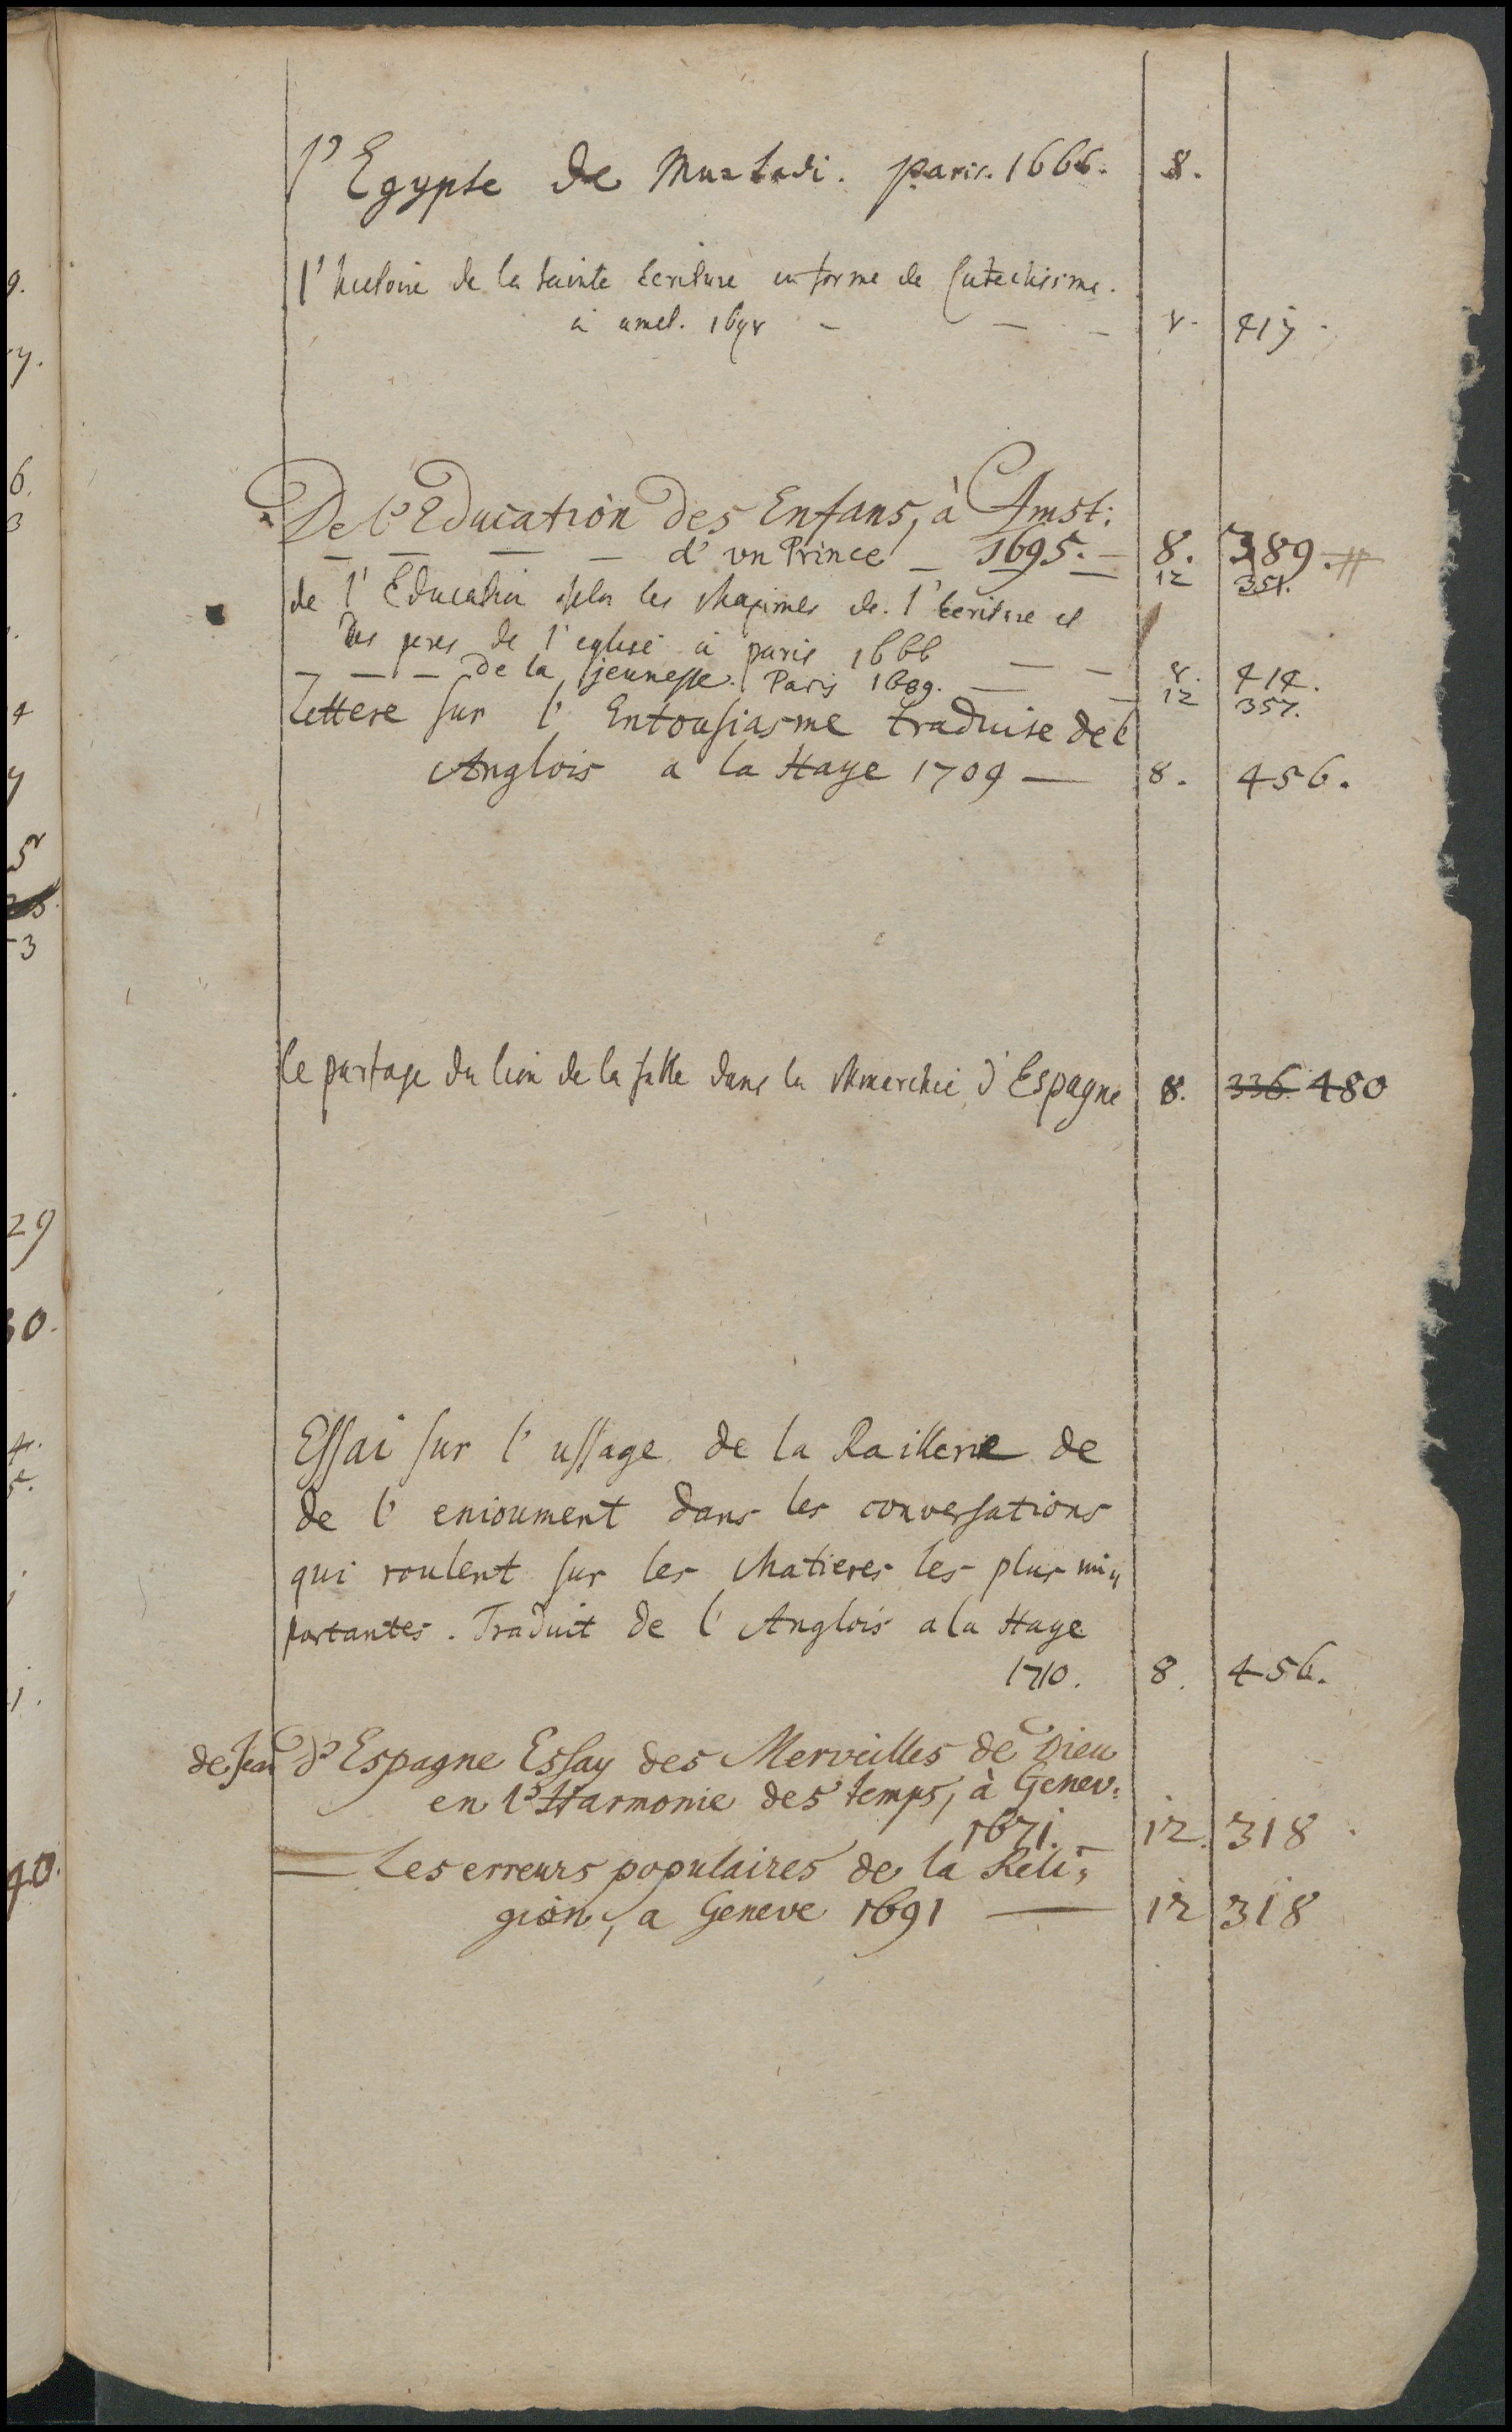 l'Egypte de Murtadi. Paris. 1666. 8.
l'histoire de la sainte Ecriture en forme de Catechisme.
à amst. 1698 - - - 8. 417.
De l'Education des Enfans, à Amst:
— — — — d'un Prince — 1695. — 8. 389.#
12 351.
de l'Education selon les Maximes de l'Ecriture et
des peres de l'eglise à paris 1666 — — 8. 414.
— — — de la jeunesse. Paris 1689. — — 12 357.
Lettere sur l'Entousiasme traduise de l'
Anglois a la Haye 1709 — 8. 456.
le partage du lion de la fable dans la Monarchie d'Espagne 8. 336. 480
Essai sur l'ussage de la Raillerie de
de l'enioument dans les conversations
qui roulent sur les Matieres les plus im„
portantes. Traduit de l'Anglois a la Haye
1710. 8. 456.
de Jean d'Espagne Essay des Merveilles de Dieu
en l'Harmonie des temps, à Genev:
1671. — 12. 318.
— Les erreurs populaires de la Reli„
gion, a Geneve 1691 — 12 318